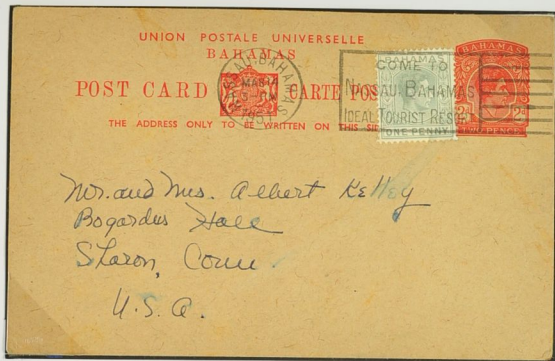 UNION POSTALE UNIVERSELLE
BAHAMAS
POST CARD CARTE POS
THE ADDRESS ONLY TO BE WRITTEN ON THIS SI
NASSAU·BAHAMAS
MAR 14
COME TO
NASSAU BAHAMAS
IDEAL TOURIST RESORT
BAHAMAS
ONE PENNY
BAHAMAS
2D
TWO PENCE
Mr. and Mrs. Albert Kelley
Bogardus Hall
Sharon, Conn.
U.S.A.